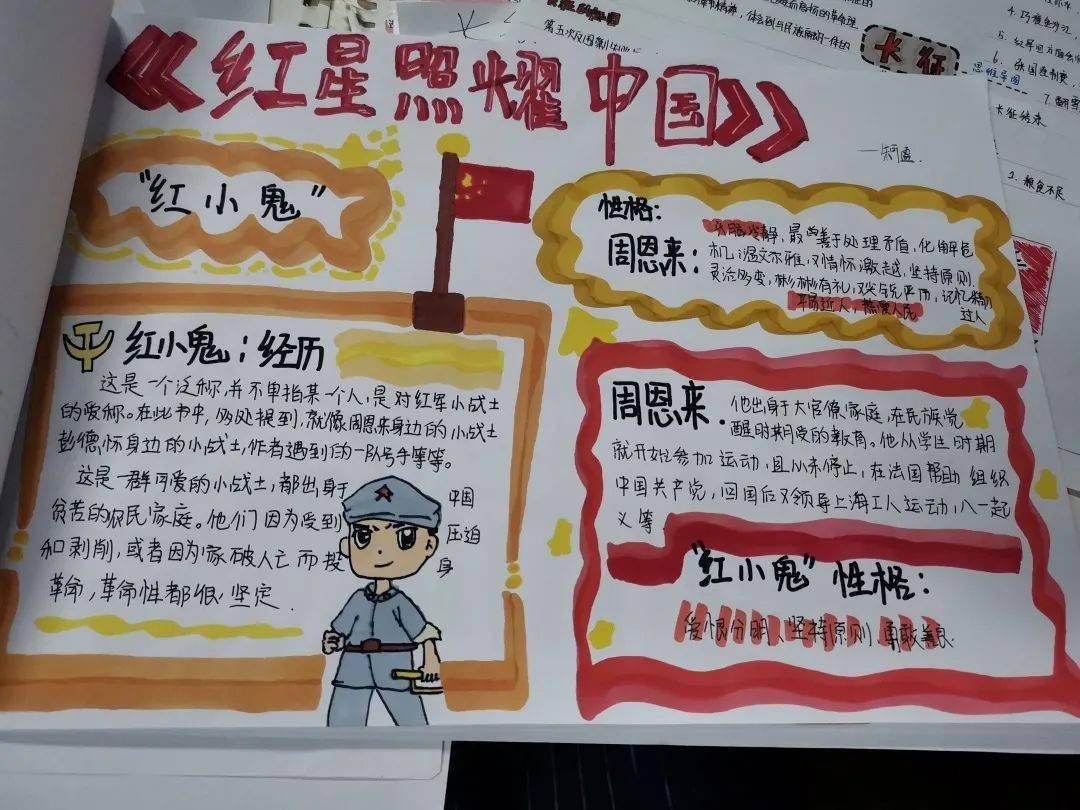 《红星照耀中国》
"红小鬼"
性格:
周恩来:
头脑冷静,最善于处理矛盾,化解危
机,温文尔雅,又情怀激越,坚持原则.
灵活多变,彬彬有礼,又
严厉,记忆精力
过人
平易近人,热爱人民
红小鬼:经历
这是一个泛称,并不单指某一个人,是对红军小战士
的爱称。在此书中,多处提到,就像周恩来身边的小战士
彭德怀身边的小战士,作者遇到的一队号手等等。
这是一群可爱的小战士,都出身于中国
贫苦的农民家庭。他们因为受到压迫
和剥削,或者因为家破人亡而投身
革命,革命性都很坚定.
周恩来.
他出身于大官僚家庭,在民族觉
醒时期受的教育。他从学生时期
就开始参加运动,且从未停止,在法国帮助组织
中国共产党,回国后又领导上海工人运动,八一起
义等.
"红小鬼"性格:
爱恨分明、坚持原则、勇敢善良.
长征
思维导图
4.巧渡金沙江
长征结束
1.粮食不足
第五次反围剿